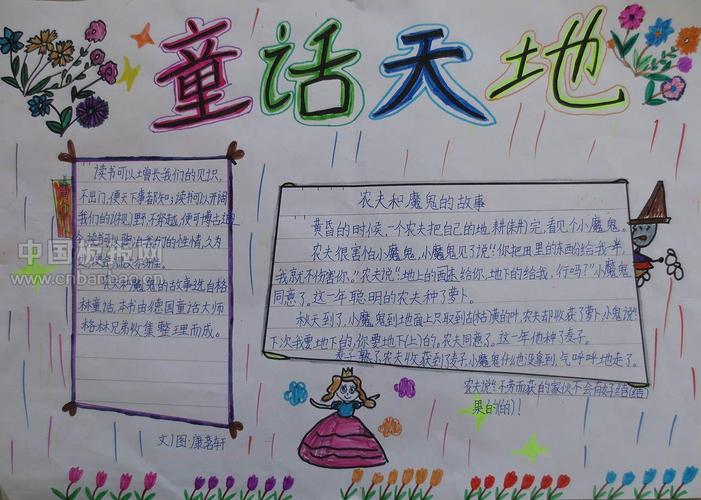 童话天地
读书可以增长我们的见识,
不出门,便天下事都知;读书可以开阔
我们的视野,不穷
可以陶冶我们的性情,久为
农夫和魔鬼的故事选自格
林童话,本书由德国童话大师
格林兄弟收集整理而成。
文/图·康茗轩
农夫和魔鬼的故事
黄昏的时候,一个农夫把自己的地耕完,看见个小魔鬼。
农夫很害怕小魔鬼,小魔鬼见了说:“你把田里的东西分给我一半,
我就不伤害你。”农夫说:“地上的给你,地下的给我,行吗?”小魔鬼
同意了。这一年聪明的农夫种了萝卜。
秋天到了,小魔鬼到地面上只取到枯黄的叶,农夫却收获了萝卜,小鬼说:“
下次我要地下的,你要地(上)的。农夫同意了。这一年他种了麦子。
麦子熟了农夫收获到麦子,小魔鬼什么也没拿到,气呼呼地走了。
农夫说:“不劳而获的家伙不会有好结
果的(的)!
中国板报网
www.cnbanbao.cn